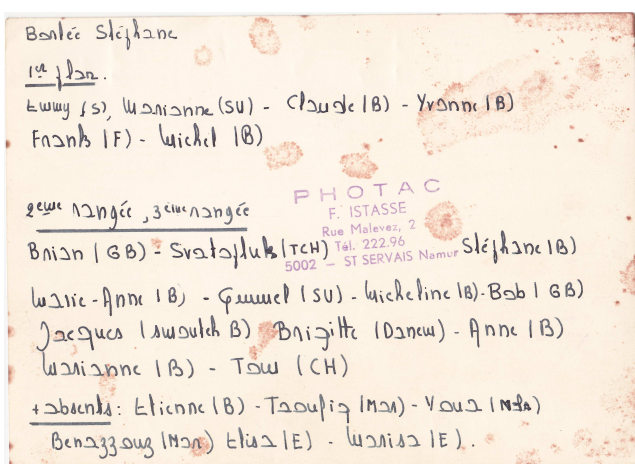 Bortée Stéphane
1er plan.
Emmy (S), Marianne (SU) - Claude (B) - Yvonne (B)
Frank (F) - Michel (B)
PHOTAC
F. ISTASSE
Rue Malevez, 2
Tél. 222.96
5002 - ST SERVAIS Namur
2eme rangée, 3eme rangée
Brian (GB) - Svatopluk (TCH) Stéphane (B)
Marie-Anne (B) - Gummel (SU) - Micheline (B) - Bob (GB)
Jacques (B) Brigitte (Danem) - Anne (B)
Marianne (B) - Tom (CH)
+ absents: Etienne (B) - Taoufiq (Mar) - Youa
Benazzouz (Mar) Elisa (E) - Marisa (E).